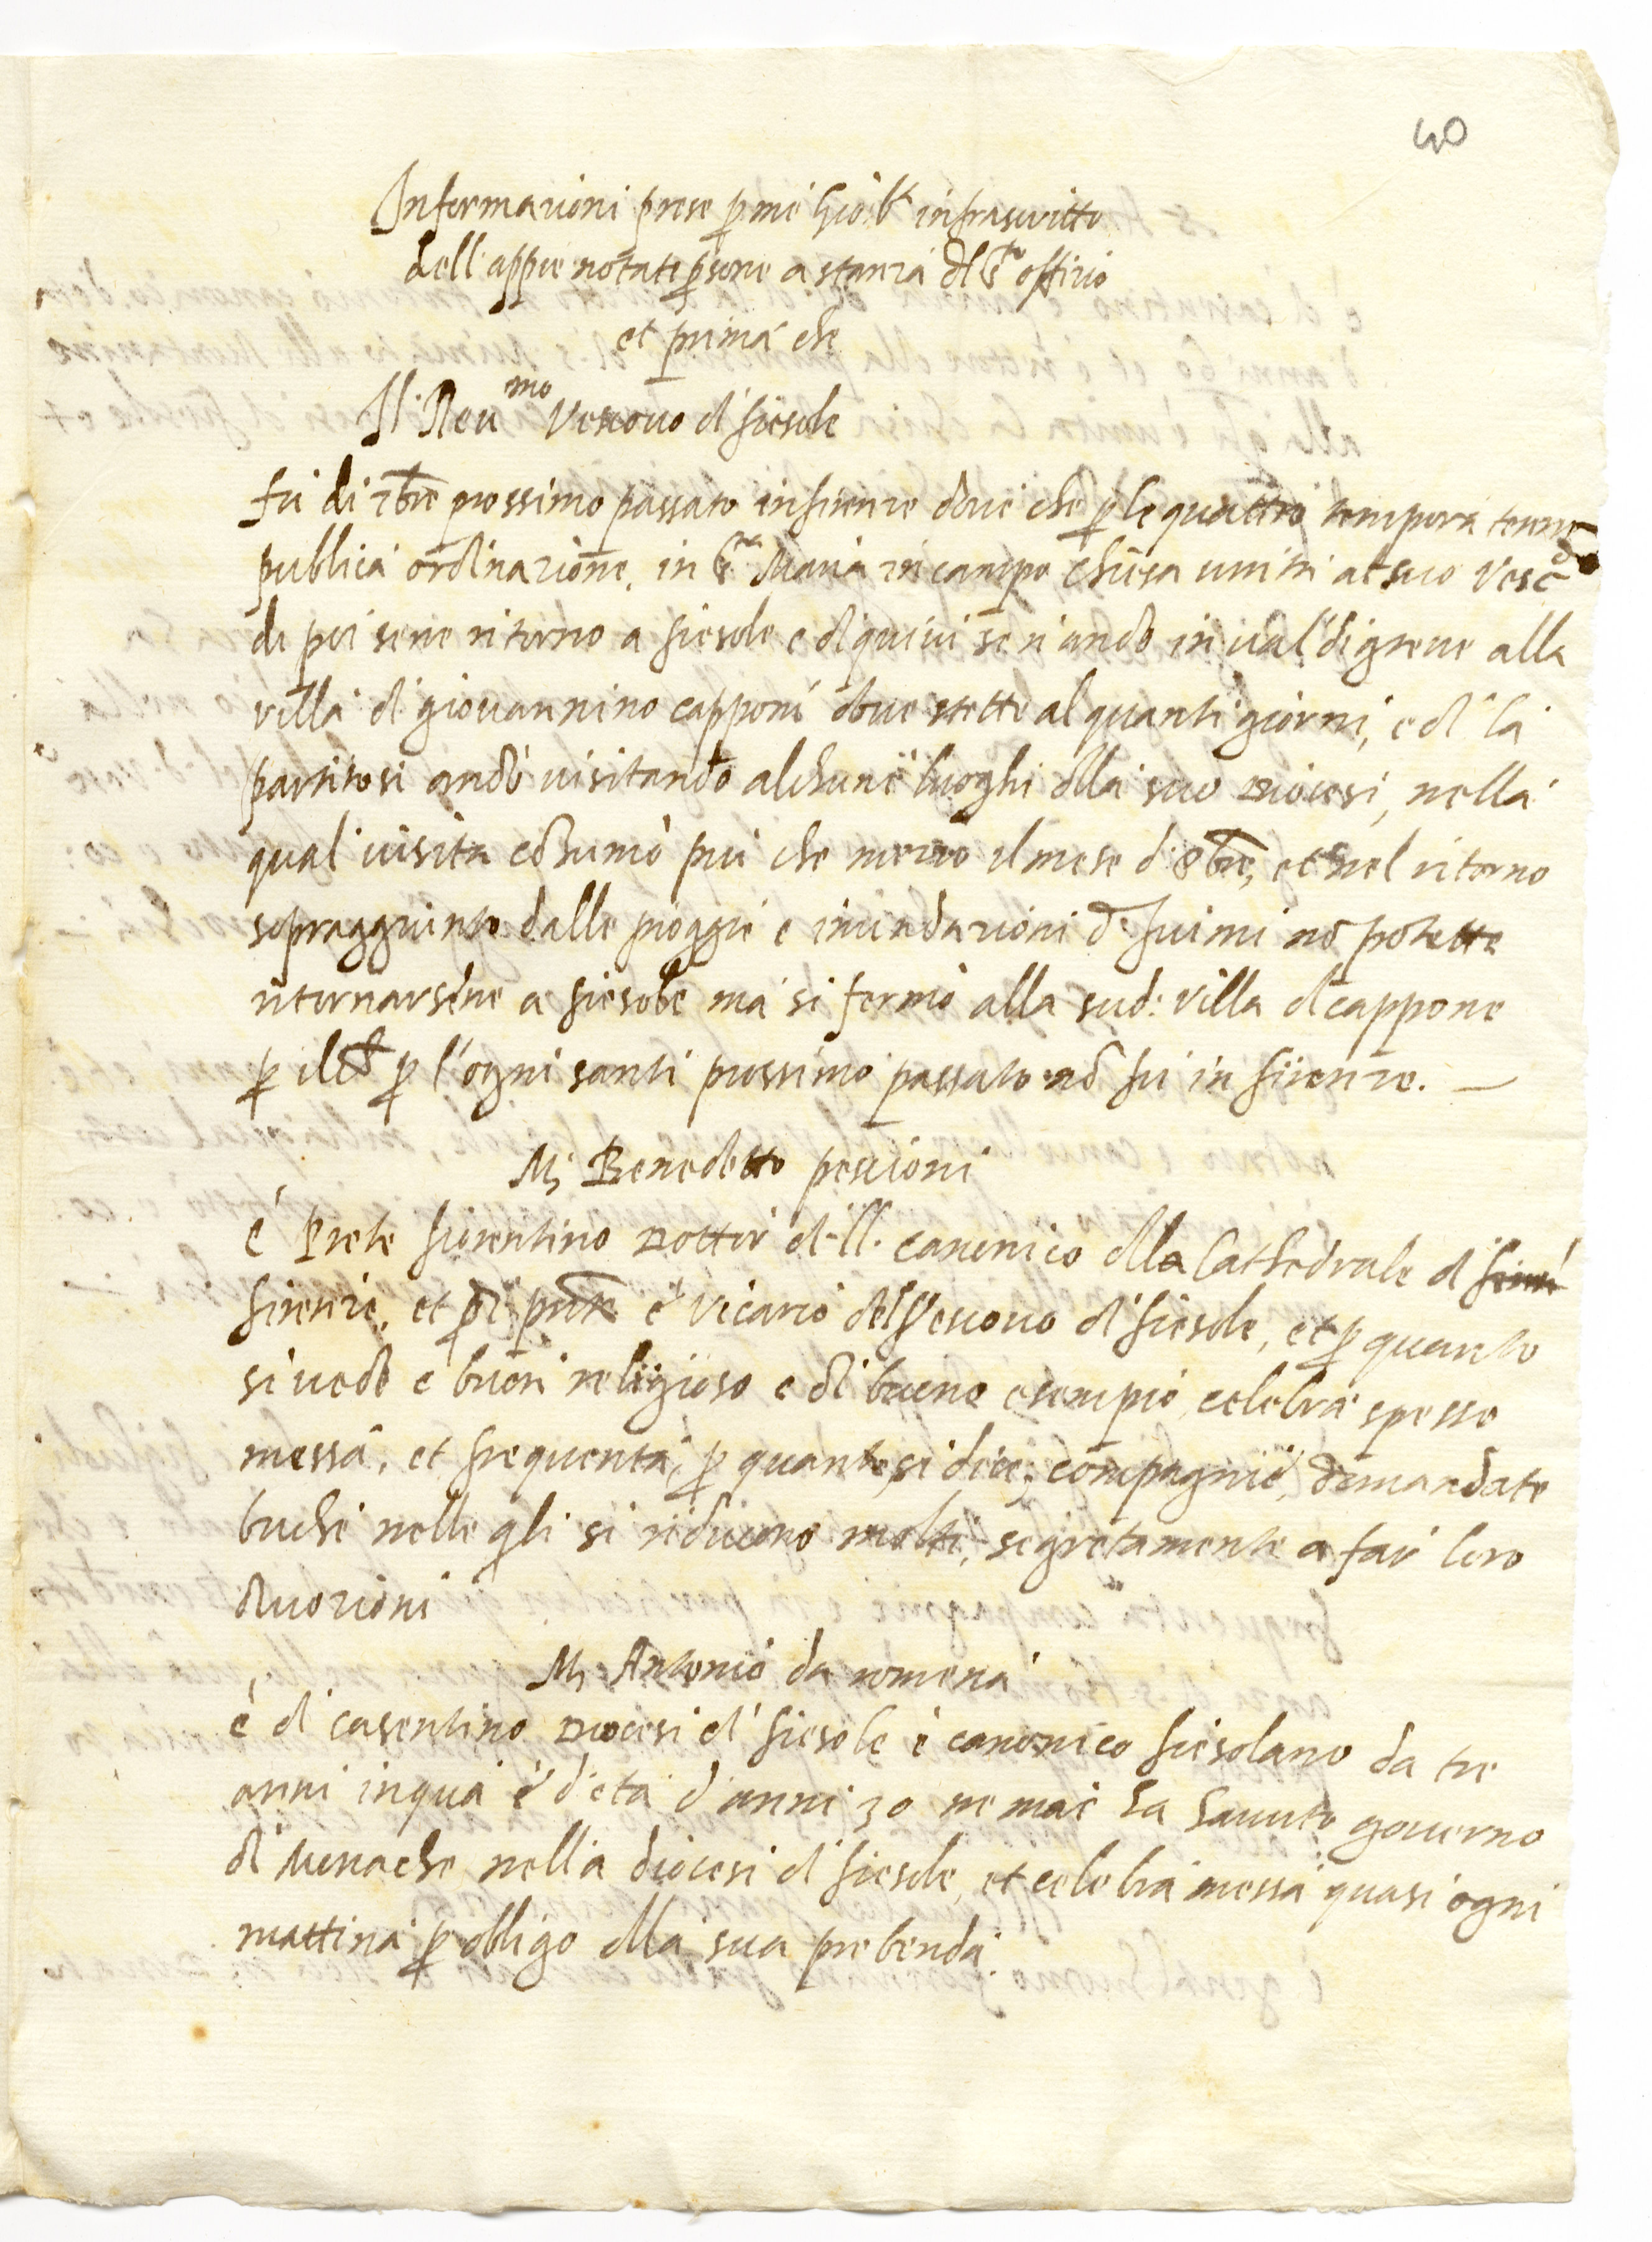 40
Informationi prese p me Gio: infrascritto
dell'appie notate psone a stanza dl S.to offitio
et prima che
Il Reu.mo Vescouo di fiesole
fù di 7bre prossimo passato in firenze doue che p le quattro tempora tenne
publica ordinazione, in S.ta Maria in campo chiesa unita al suo Vesc.do
di poi se ne ritorno a fiesole e di quiui se n'andò in ual di greue alla
villa di giouannino capponi doue stette alquanti giorni, e di là
partitosi andò uisitando alchuni luoghi dlla suo Diocesi, nella
qual uisita cōsumò piu che mezzo il mese d'8bre, et nel ritorno
sopraggiunto dalle pioggie e innundazioni di fiumi nō potette
ritornarsene a fiesole ma si fermò alla sud: villa dl cappone
p il p l'ogni santi prossimo passato nō fu in firenze. —
M. Benedetto pescioni
è Prete fiorentino Dottor di ll. canonico dlla Cathedrale di
firenze, et p è vicario del Vescouo di fiesole, et p quanto
si uede e buon religioso e di buono esempio, celebra spesso
messa, et frequenta, p quanto si dice, compagnie, domandate
buche nelle qli si riducono molti, segretamente a far loro
diuozioni
M. Antonio da romena
è di casentino Diocesi di fiesole è canonico fiesolano da tre
anni in qua è d'età d'anni 30 ne mai ha hauuto gouerno
di Monache nella diocesi di fiesole, et celebra messa quasi ogni
mattina p obligo dlla sua prebenda.